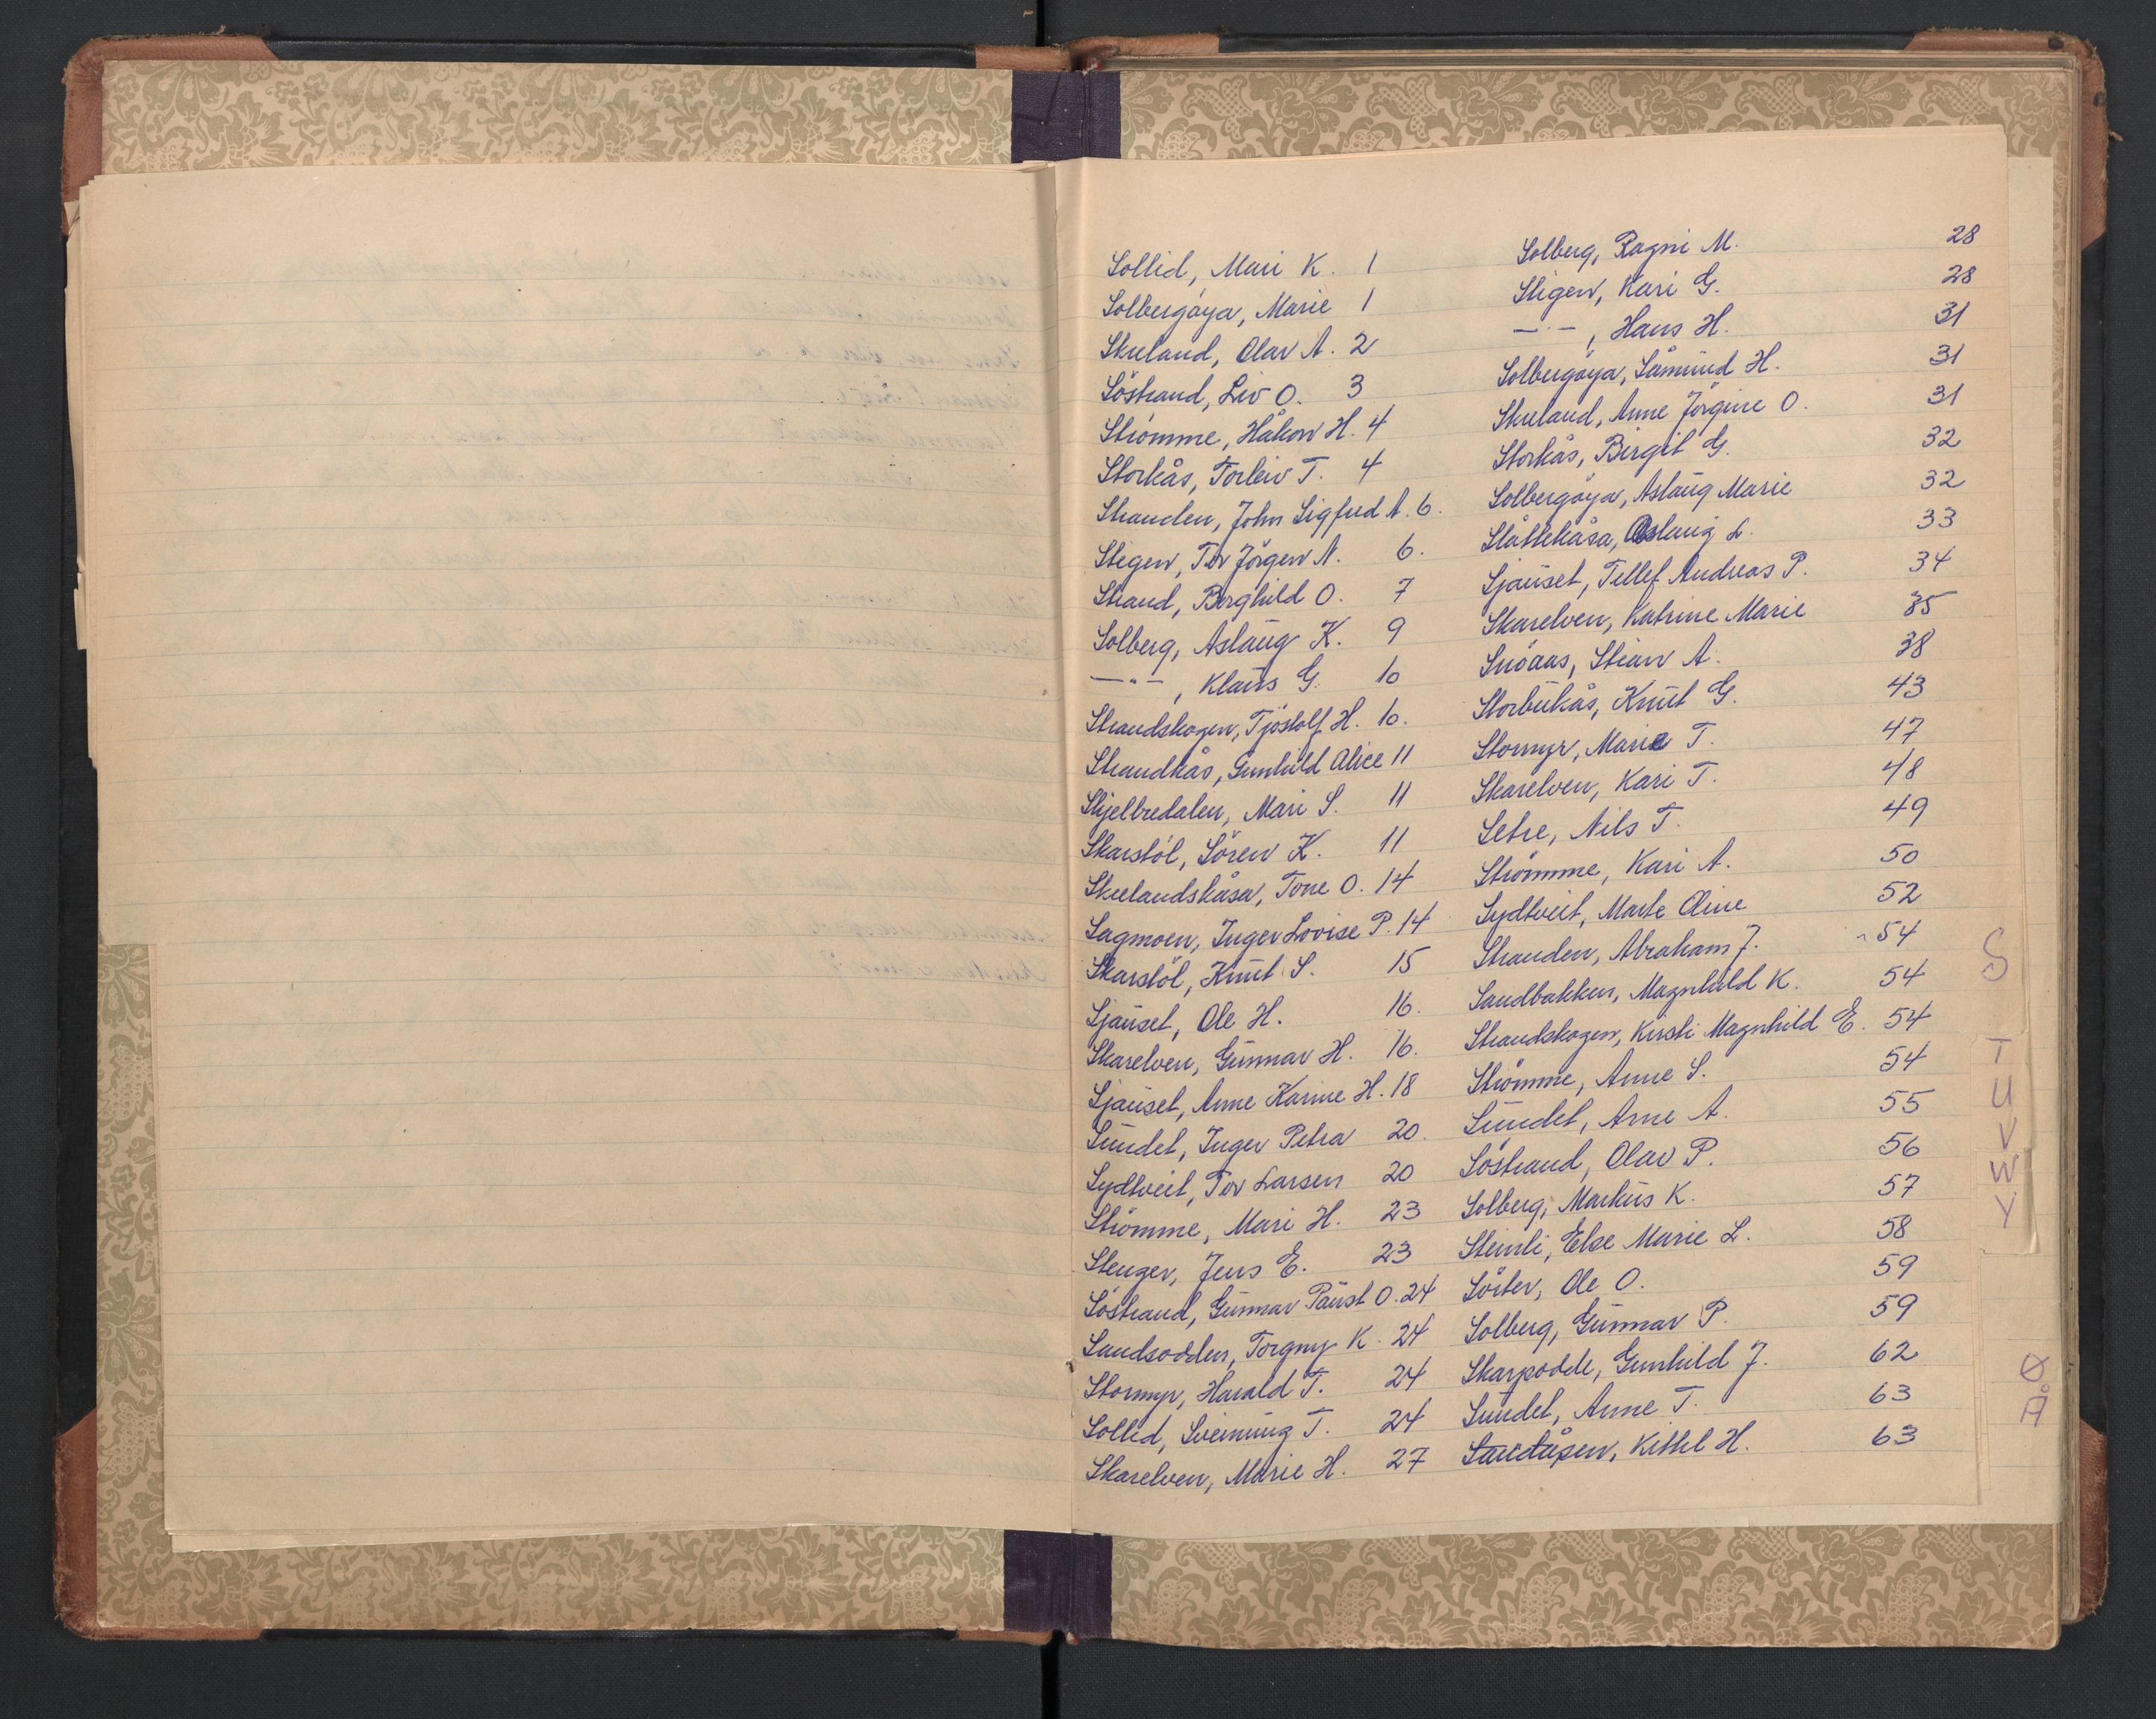 Sollid, Mari K. 1
Solbergöya, Marie 1
Skuland, Olav A. 2
Söstrand, Liv O. 3
Strömme, Håkon H. 4
Storkås, Torleiv T. 4
Stranden, John Sigfred A. 6.
Stigen, Tor Jörgen N. 6.
Strand, Borghild O. 7
Solberg, Aslaug K. 9
—"—, Klaus G. 10
Strandskogen, Tjöstolf H. 10.
Strandkås, Gunhild Alice 11
Skjelbredalen, Mari S. 11
Skarstöl, Sören K. 11
Skulandskåsa, Tone O. 14
Sagmoen, Inger Lovise P. 14
Skarstöl, Knut S. 15
Sjauset, Ole H. 16.
Skarelven, Gunnar H. 16.
Sjauset, Anne Karine H. 18
Sundet, Inger Petra 20.
Sydtveit, Tor Larsen 20
Strömme, Mari H. 23
Stenger, Jens E. 23
Söstrand, Gunnar Paust O. 24
Sandsodden, Torgny K. 24
Stormyr, Harald T. 24
Sollid, Sveinung T. 24
Skarelven, Marie H. 27
Solberg, Ragni M. 28
Stigen, Kari G. 28
—"—, Hans H. 31
Solbergöya, Såmund H. 31
Skuland, Anne Jörgine O. 31
Storkås, Birgit G. 32
Solbergöya, Aslaug Marie 32
Slåttekåsa, Aslaug L. 33
Sjauset, Tellef Andreas P. 34
Skarelven, Katrine Marie 35
Snöaas, Stian A. 38
Storbukås, Knut G. 43
Stormyr, Marie T. 47
Skarelven, Kari T. 48
Setre, Nils T. 49
Strömme, Kari A. 50
Sydtveit, Marte Oline 52
Stranden, Abraham J. 54
Sandbakken, Magnhild K. 54
Strandskogen, Kirsti Magnhild E. 54
Strömme, Anne S. 54
Sundet, Arne A. 55
Söstrand, Olav P. 56
Solberg, Markus K. 57
Steinli, Else Marie L. 58
Sörter, Ole O. 59
Solberg, Gunnar P. 59
Skarpodde, Gunhild J. 62
Sundet, Anne T. 63
Sandåsen, Kittel H. 63
S
T
U
V
W
Y
Ø
Å